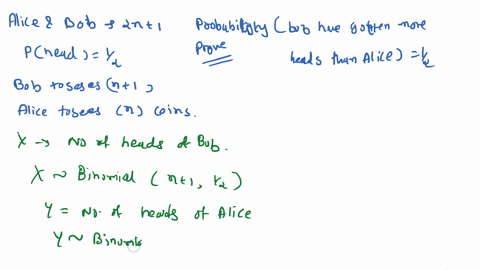 Alice & Bob → 2n+1
P(head) = 1/2
Bob tosses (n+1),
Alice tosses (n) coins.
Probability (bob have gotten more
Prove
heads than Alice) = 1/2
X → No of heads of Bob.
X ~ Binomial (n+1, 1/2)
Y = No. of heads of Alice
Y ~ Binomi